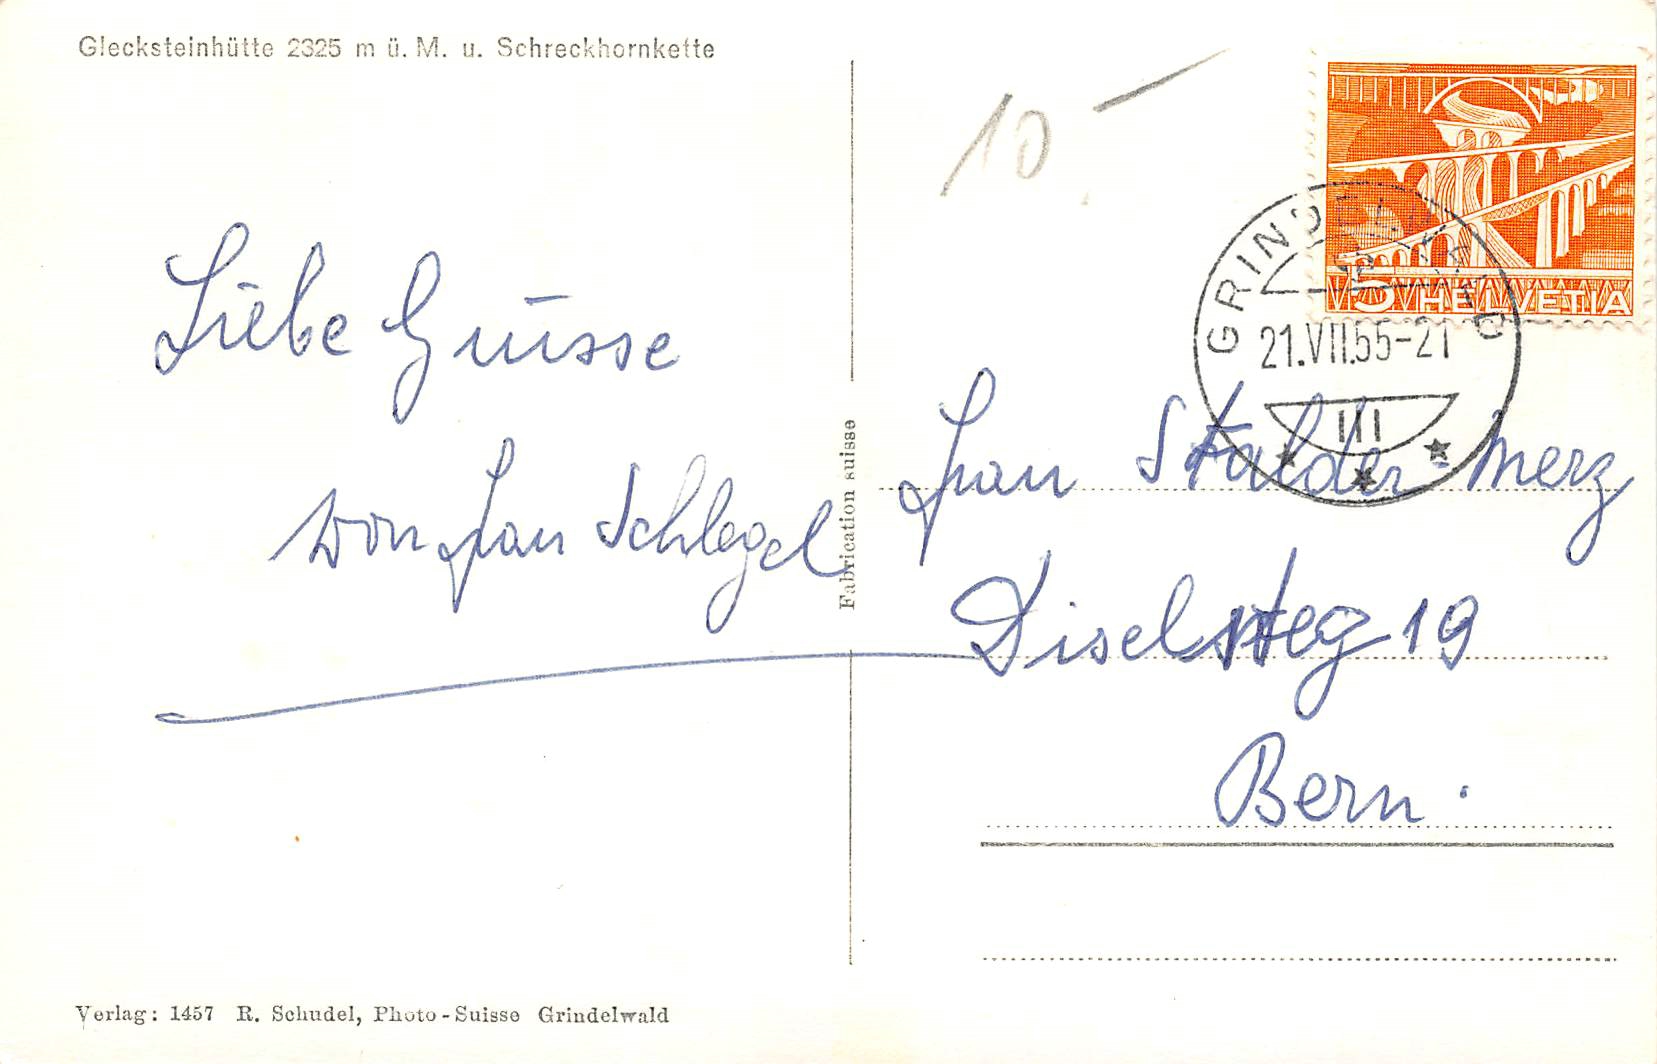 Glecksteinhütte 2325 m ü. M. u. Schreckhornkette
10.–
5 HELVETIA
GRINDELWALD
21.VII.55-21
III
Liebe Grüsse
von Frau Schlegel
Fabrication suisse
Frau Stalder-Merz
Diselsteg 19
Bern.
Verlag: 1457 R. Schudel, Photo-Suisse Grindelwald